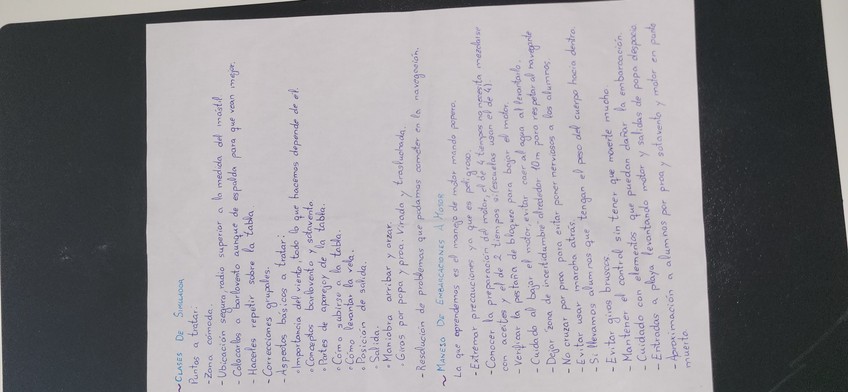 ~ CLASES DE SIMULADOR
Puntos a tratar:
- Zona comoda.
- Ubicación segura radio superior a la medida del mástil
- Colocarlos a barlovento aunque de espalda para que vean mejor.
- Hacerles repetir sobre la tabla
- Correcciones grupales.
- Aspectos básicos a tratar:
• Importancia del viento, todo lo que hacemos depende de el.
• Conceptos barlovento y sotavento
• Partes de aparejo y de la tabla.
• Cómo subirse a la tabla.
• Cómo levantar la vela.
• Posición de salida
• Salida.
• Maniobra arribar y orzar.
• Giros por popa y proa. Virada y trasluchada.
- Resolución de problemas que podamos cometer en la navegación.
~ MANEJO DE EMBARCACIONES A MOTOR
Lo que aprendemos es el manejo de motor mando popero.
- Extremar precauciones ya que es peligroso.
- Conocer la preparación del motor, el de 4 tiempos no necesita mezclarse
con aceites y el de 2 tiempos si (escuelas usan el de 4).
- Verificar la pestaña de bloqueo para bajar el motor.
- Cuidado al bajar el motor, evitar caer al agua al levantarlo.
- Dejar zona de incertidumbre alrededor 10m para respetar al navegante
- No cruzar por proa para evitar poner nerviosos a los alumnos.
- Evitar usar marcha atrás.
- Si llevamos alumnos que tengan el peso del cuerpo hacia dentro.
- Evitar giros bruscos.
- Mantener el control sin tener que moverte mucho.
- Cuidado con elementos que puedan dañar la embarcación.
- Entradas a playa levantando motor y salidas de popa despacio
- Aproximación a alumnos por proa y sotavento y motor en punto
muerto.